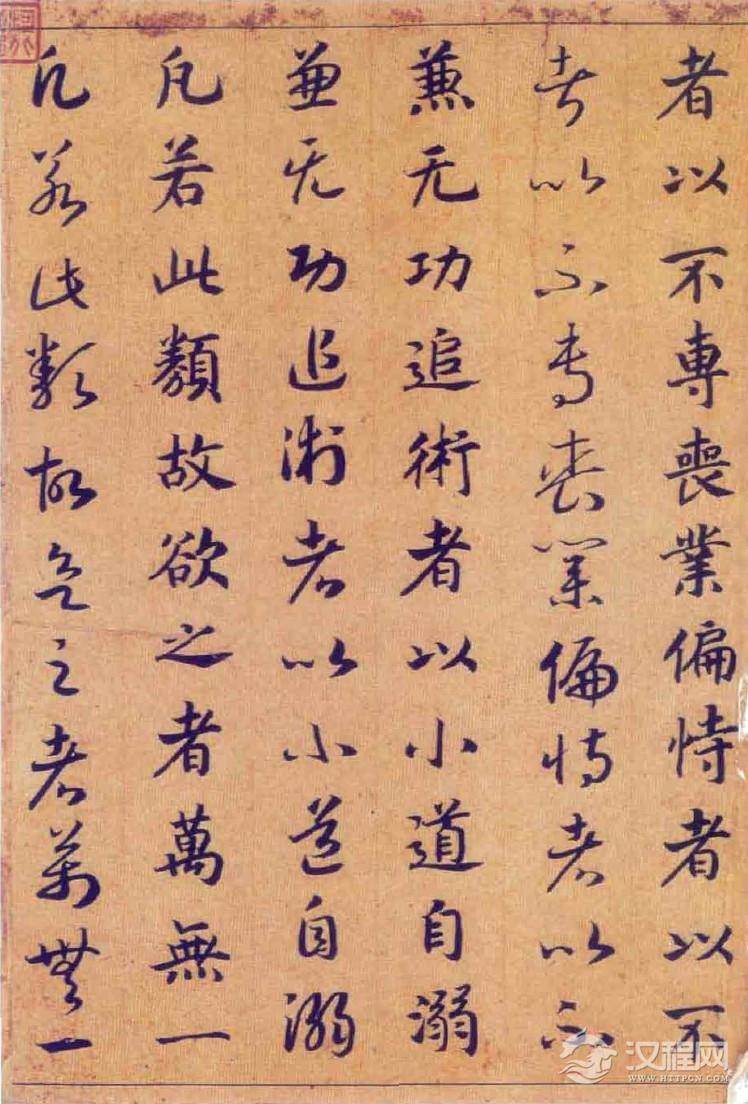 者以不専喪業偏恃者以不
者以不専喪業偏恃者以不
兼无功追術者以小道自溺
兼无功追術者以小道自溺
凡若此類故欲之者萬無一
凡若此類故欲之者萬無一
汉程网
WWW.HTTPCN.COM